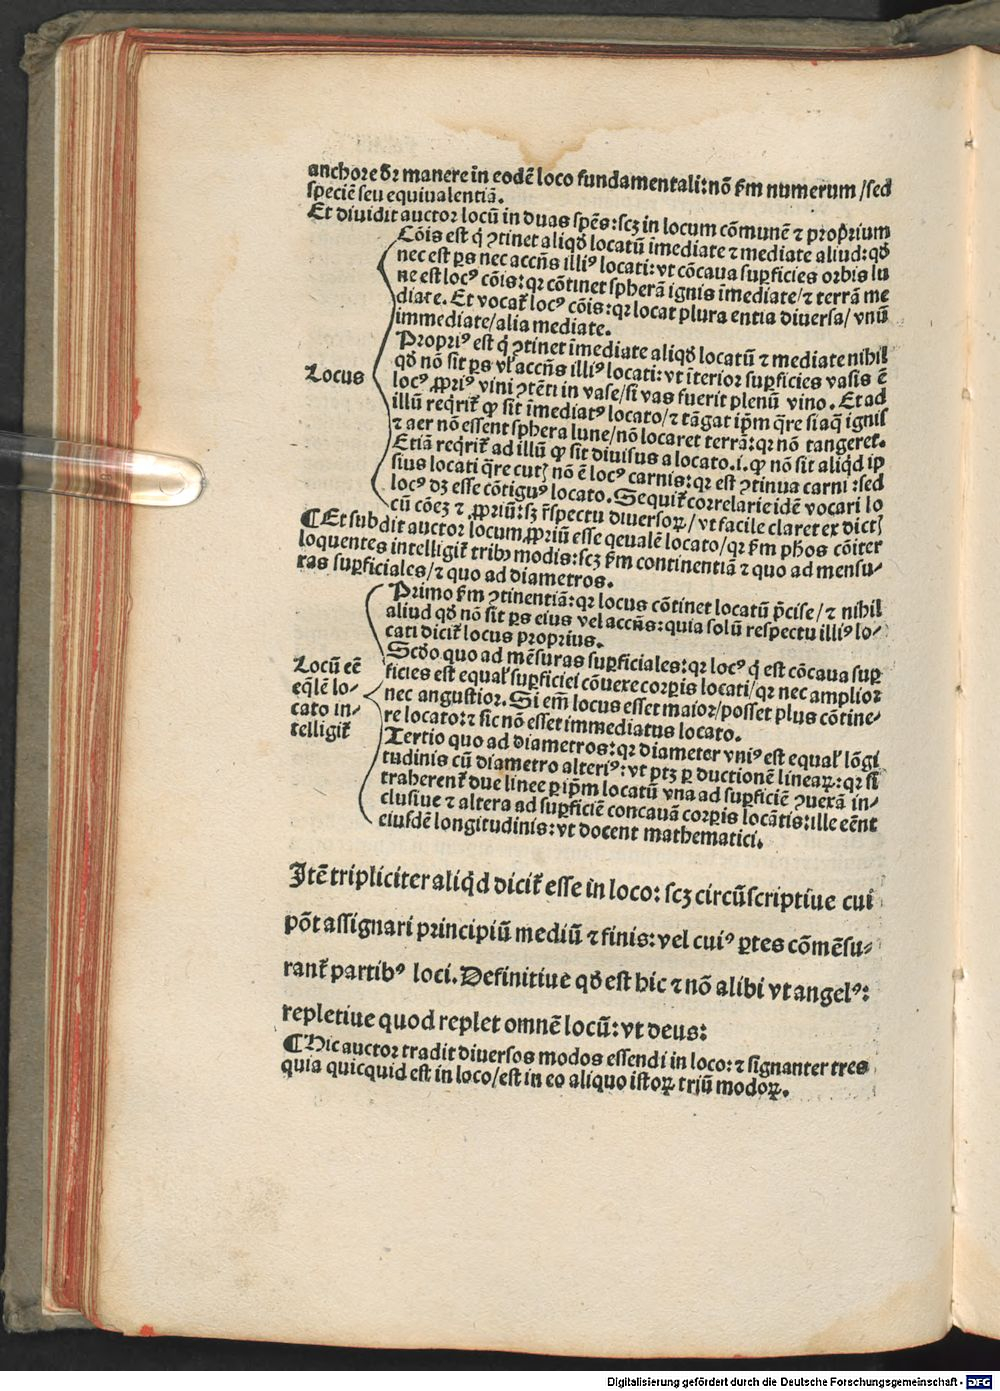 anchore dr̄ manere in eodē loco fundamentali: nō ẜm numerum / sed
speciē seu equiualentiā.
Et diuidit auctor locū in duas spēs: scꝫ in locum cōmunē ⁊ propriū
Cōis est q̇ ꝯtinet aliqđ locatū īmediate ⁊ mediate aliud: qđ
nec est ꝑs nec accñs illiꝰ locati: vt cōcaua suꝑficies orbis lu
ne est locꝰ cōis: qꝛ cōtinet spherā ignis īmediate / ⁊ terrā me
diate. Et vocat̃ locꝰ cōis: qꝛ locat plura entia diuersa / vnū
immediate / alia mediate.
Locus
Propriꝰ est q̇ ꝯtinet īmediate aliqđ locatū ⁊ mediate nihil
qđ nō sit ꝑs vl̃ accñs illiꝰ locati: vt īterior suꝑficies vasis ē
locꝰ ꝓpriꝰ vini ꝯtēti in vase / si vas fuerit plenū vino. Et ad
illū reqrit̃ ꝙ sit īmediatꝰ locato / ⁊ tāgat ip̄m q̄re si aq̄ ignis
⁊ aer nō essent sphera lune / nō locaret terrā: qꝛ nō tangeret.
Etiā reqrit̃ ad illū ꝙ sit diuisus a locato .i. ꝙ nō sit aliqd ip
sius locati q̄re cutꝭ nō ē locꝰ carnis: qꝛ est ꝯtinua carni: sed
locꝰ dꝫ esse cōtiguꝰ locato. Sequit̃ correlarie idē vocari lo
cū cōeꝫ ⁊ ꝓpriū: sꝫ r̄spectu diuersoꝝ / vt facile claret ex dictꝭ
¶ Et subdit auctor locum ꝓpriū esse qeualē locato / qꝛ ẜm ph̄os cōiter
loquentes intelligit̃ tribꝰ modis: scꝫ ẜm continentiā ⁊ quo ad mensu⸗
ras suꝑficiales / ⁊ quo ad diametros.
Primo ẜm ꝯtinentiā: qꝛ locus cōtinet locatū p̄cise / ⁊ nihil
aliud qđ nō sit ꝑs eius vel accñs: quia solū respectu illiꝰ lo⸗
cati dicit̃ locus proprius.
Locū eē
eq̄lē lo⸗
cato in⸗
telligit̃
Scđo quo ad mēsuras suꝑficiales: qꝛ locꝰ q̇ est cōcaua suꝑ
ficies est equal̃ suꝑficiei cōuexe corꝑis locati / qꝛ nec amplior
nec angustior. Si em̄ locus esset maior / posset plus cōtine⸗
re locator: ⁊ sic nō esset immediatus locato.
Tertio quo ad diametros: qꝛ diameter vniꝰ est equal̃ lōgi
tudinis cū diametro alteriꝰ: vt ptꝫ ꝑ ductionē lineaꝝ: qꝛ si
traherent̃ due linee ꝑ ip̄m locatū vna ad suꝑficiē ꝯuexā in⸗
clusiue ⁊ altera ad suꝑficiē concauā corꝑis locātis: ille eēnt
eiusdē longitudinis: vt docent mathematici.
Itē tripliciter aliqd dicit̃ esse in loco: scꝫ circūscriptiue cui
pōt assignari principiū mediū ⁊ finis: vel cuiꝰ ꝑtes cōmēsu⸗
rant̃ partibꝰ loci. Definitiue qđ est hic ⁊ nō alibi vt angelꝰ:
repletiue quod replet omnē locū: vt deus:
¶ Hic auctor tradit diuersos modos essendi in loco: ⁊ signanter tres
quia quicquid est in loco / est in eo aliquo istoꝝ triū modoꝝ.
Digitalisierung gefördert durch die Deutsche Forschungsgemeinschaft - DFG